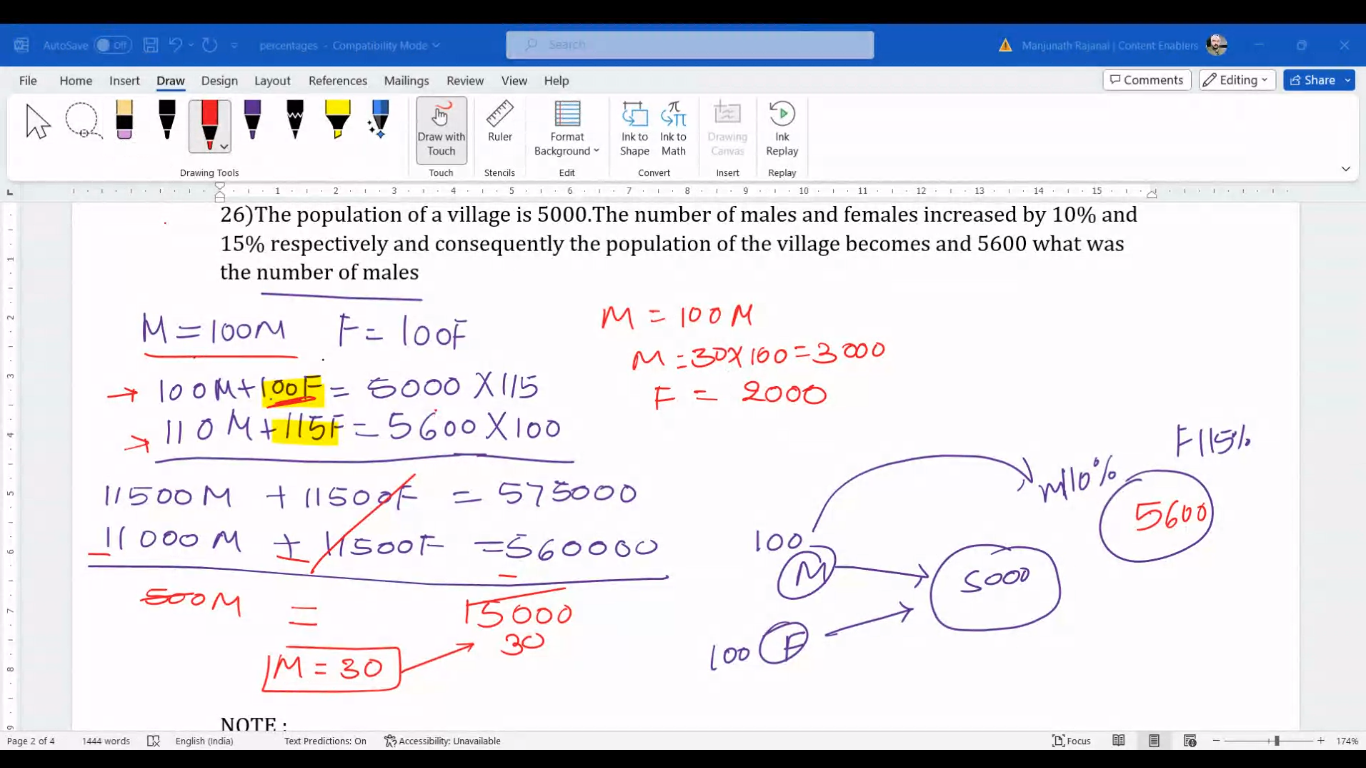 AutoSave Off percentages - Compatibility Mode Search Manjunath Rajanal | Content Enablers
File Home Insert Draw Design Layout References Mailings Review View Help Comments Editing Share
Draw with Touch
Ruler
Format Background
Ink to Shape
Ink to Math
Drawing Canvas
Ink Replay
Drawing Tools Touch Stencils Edit Convert Insert Replay
1 2 3 4 5 6 7 8 9 10 11 12 13 14 15
26)The population of a village is 5000.The number of males and females increased by 10% and
15% respectively and consequently the population of the village becomes and 5600 what was
the number of males
M = 100M F = 100F
100M + 100F = 5000 X 115
110M + 115F = 5600 X 100
11500M + 11500F = 575000
11000M ± 11500F = 560000
500M = 15000
30
M = 30
M = 100M
M = 30 x 100 = 3000
F = 2000
F 115%
M 110%
5600
100
M
5000
100 F
NOTE :
Page 2 of 4 1444 words English (India) Text Predictions: On Accessibility: Unavailable Focus 174%